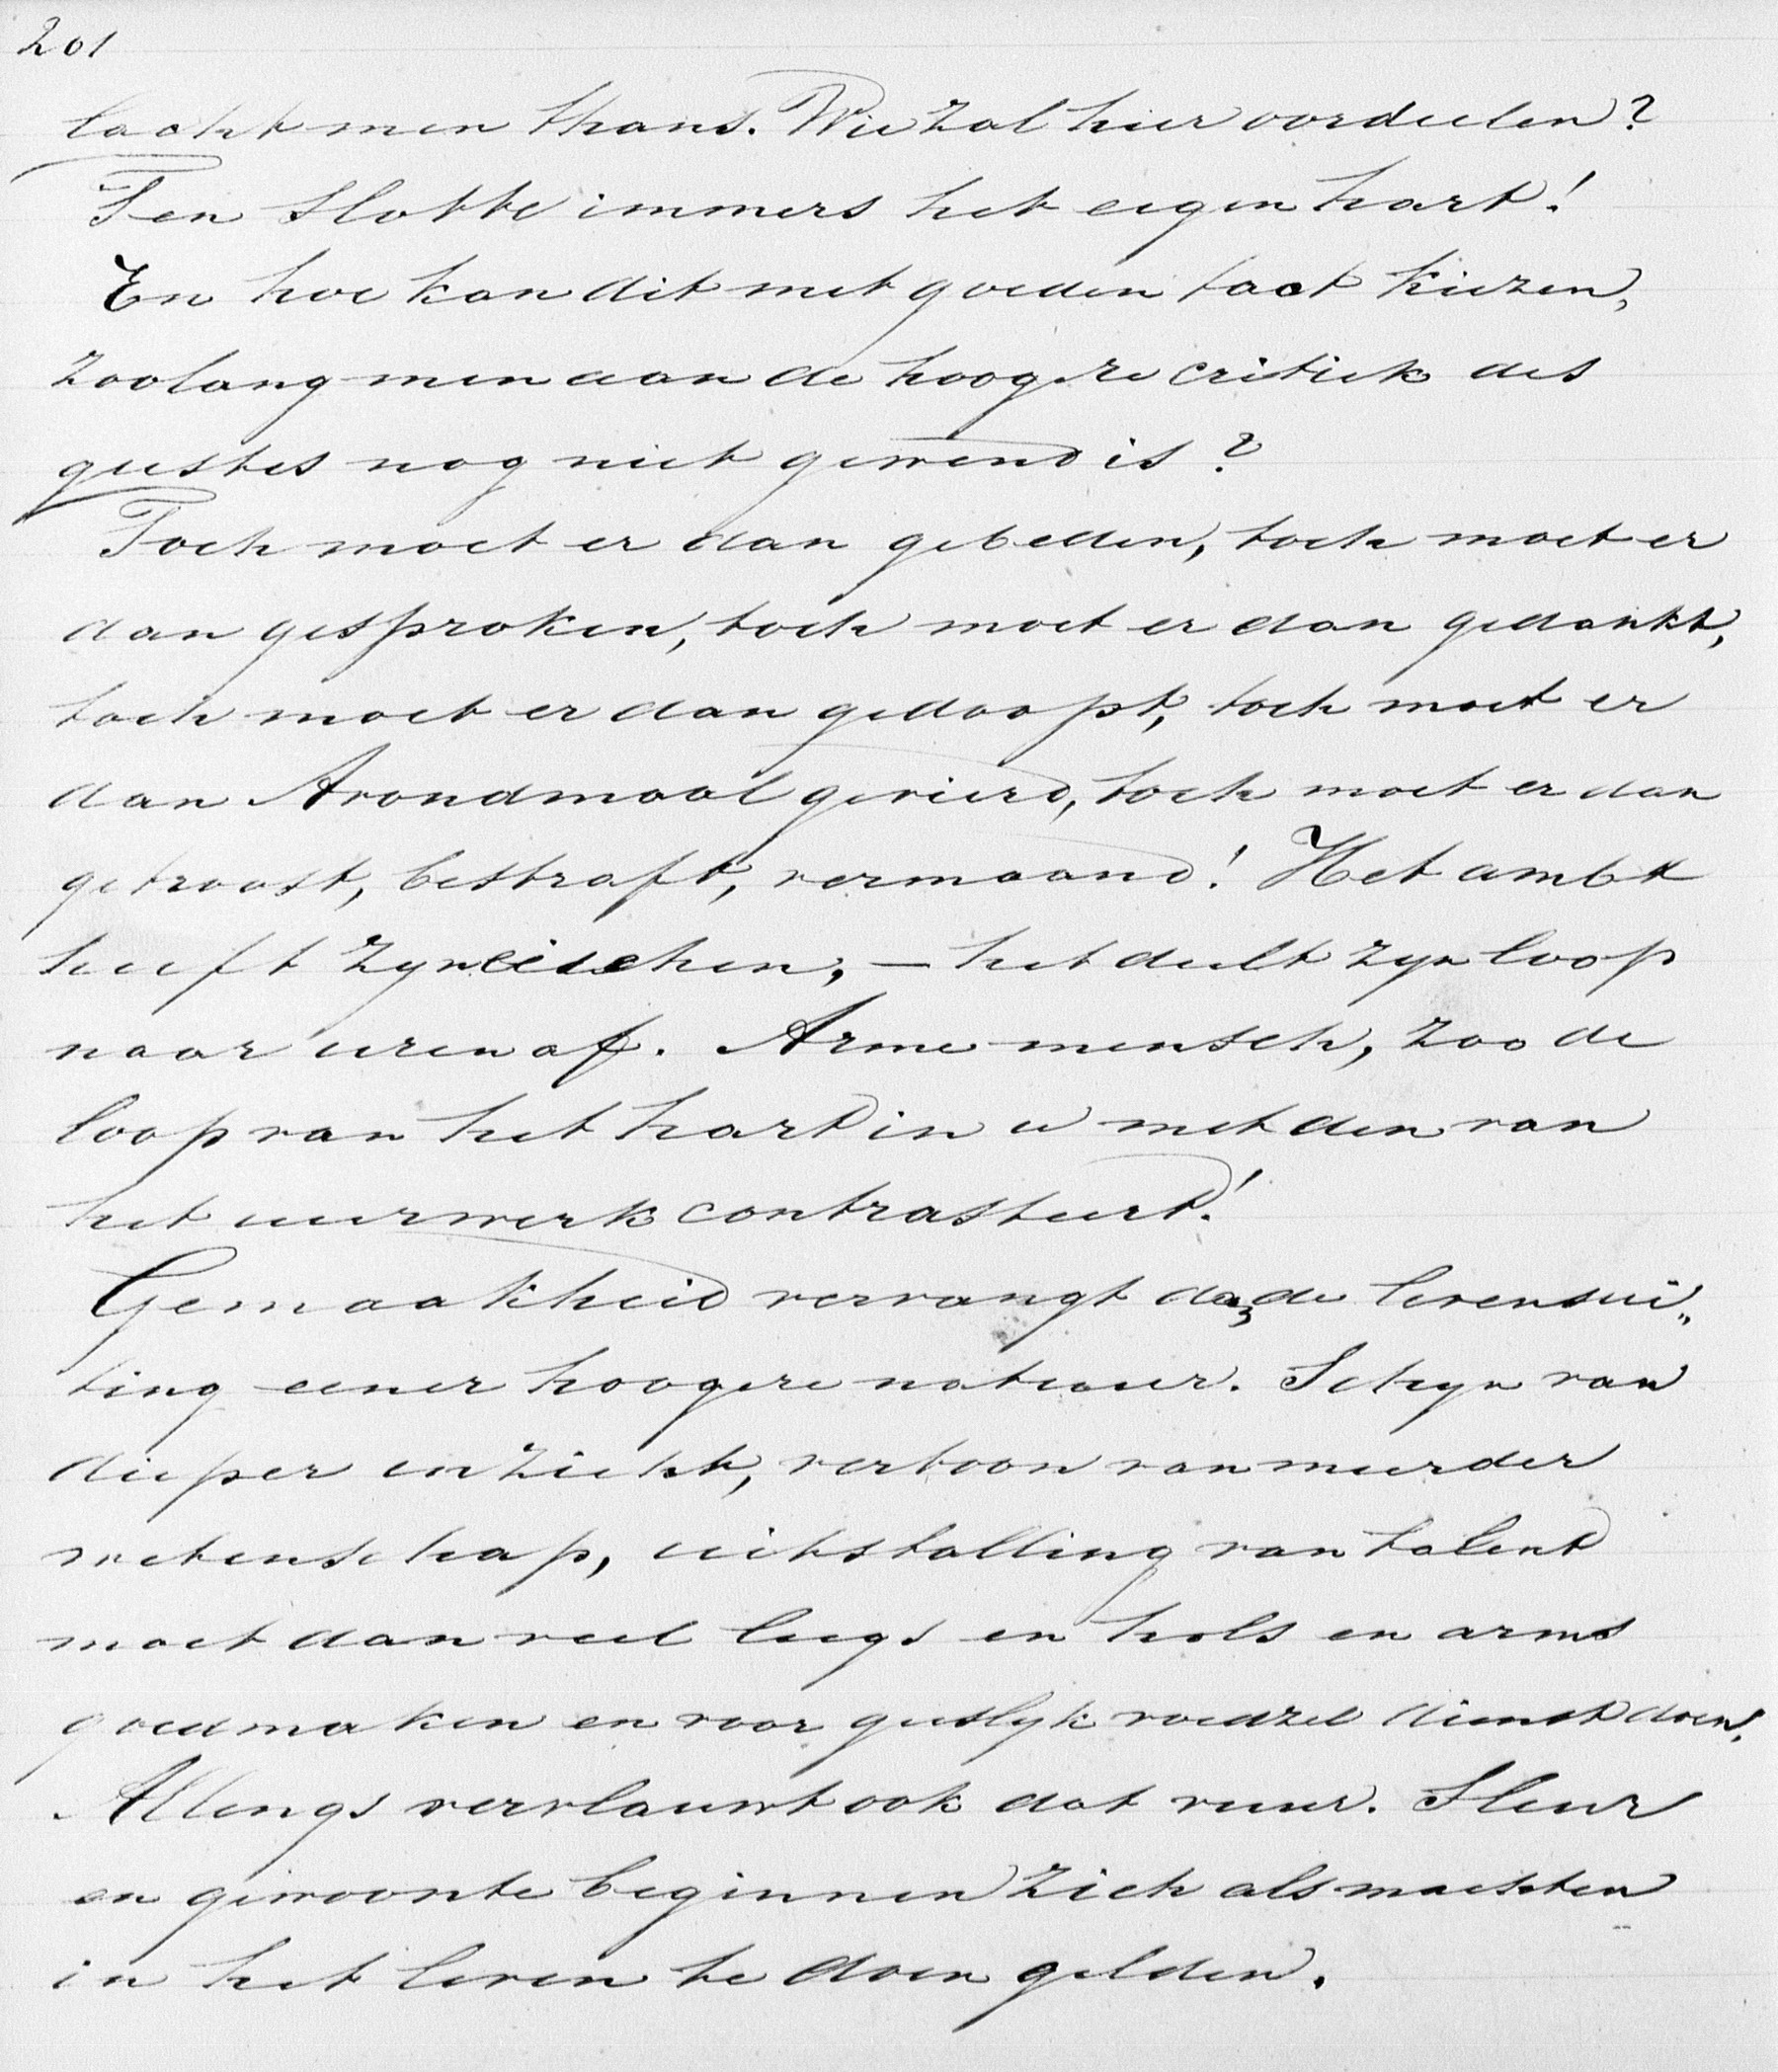 201
lacht men thans. Wie zal hier oordeelen?
Ten slotte immers het eigen hart!
En hoe kan dit met goeden tact kiezen,
zoolang men aan de hoogere critiek des
geestes nog niet gewend is?
Toch moet er dan gebeden, toch moet er
dan gesproken, toch moet er dan gedankt,
toch moet er dan gedoopt, toch moet er
dan Avondmaal gevierd, toch moet er dan
getroost, bestraft, vermaand! Het ambt
heeft zyn eischen, – het deelt zyn loop
naar uren af. Arme mensch, zoo de
loop van het hart in u met den van
het uurwerk contrasteert!
Gemaaktheid vervangt dan de levensui„
ting eener hoogere natuur. Schyn van
dieper inzicht, vertoon van meerder
wetenschap, uitstalling van talent
moet dan veel leegs en hols en arms
goedmaken en voor geestlyk voedzel dienst doen.
Allengs vervlauwt ook dat vuur. Sleur
en gewoonte beginnen zich als machten
in het leven te doen gelden.